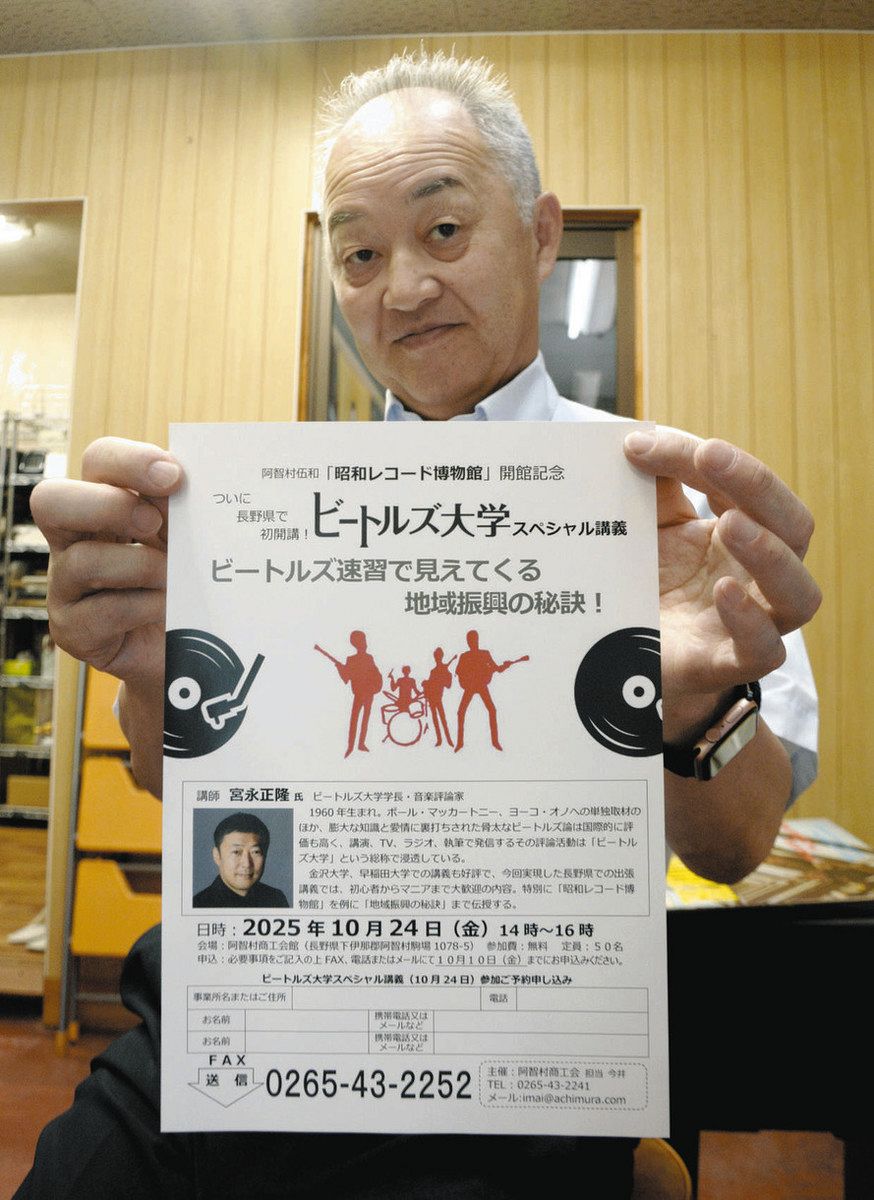 阿智村伍和「昭和レコード博物館」開館記念
ついに
長野県で
初開講！
ビートルズ大学スペシャル講義
ビートルズ速習で見えてくる
地域振興の秘訣！
講師 宮永正隆 氏 ビートルズ大学学長・音楽評論家
1960年生まれ。ポール・マッカートニー、ヨーコ・オノへの単独取材の
ほか、膨大な知識と愛情に裏打ちされた骨太なビートルズ論は国際的に評
価も高く、講演、TV、ラジオ、執筆で発信するその評論活動は「ビートル
ズ大学」という総称で浸透している。
金沢大学、早稲田大学での講義も好評で、今回実現した長野県での出張
講義では、初心者からマニアまで大歓迎の内容。特別に「昭和レコード博
物館」を例に「地域振興の秘訣」まで伝授する。
日時：2025年10月24日（金）14時～16時
会場：阿智村商工会館（長野県下伊那郡阿智村駒場1078-5） 参加費：無料 定員：５０名
申込：必要事項をご記入の上FAX、電話またはメールにて１０月１０日（金）までにお申込みください。
ビートルズ大学スペシャル講義（10月24日）参加ご予約申し込み
事業所名またはご住所 電話
お名前 携帯電話又は
メールなど
お名前 携帯電話又は
メールなど
ＦＡＸ
送信
0265-43-2252
主催：阿智村商工会 担当 今井
TEL：0265-43-2241
メール：imai@achimura.com